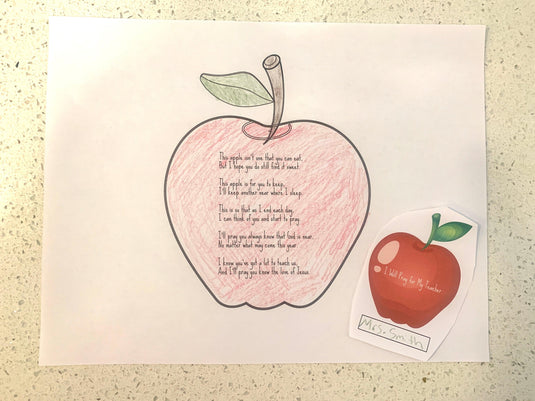 This apple isn't one that you can eat,
But I hope you do still find it sweet.
This apple is for you to keep,
I'll keep another near where I sleep.
This is so that as I end each day,
I can think of you and start to pray.
I'll pray you always know that God is near.
No matter what may come this year.
I know you've got a lot to teach us,
And I'll pray you know the love of Jesus.
I Will Pray for My Teacher
Mrs. Smith